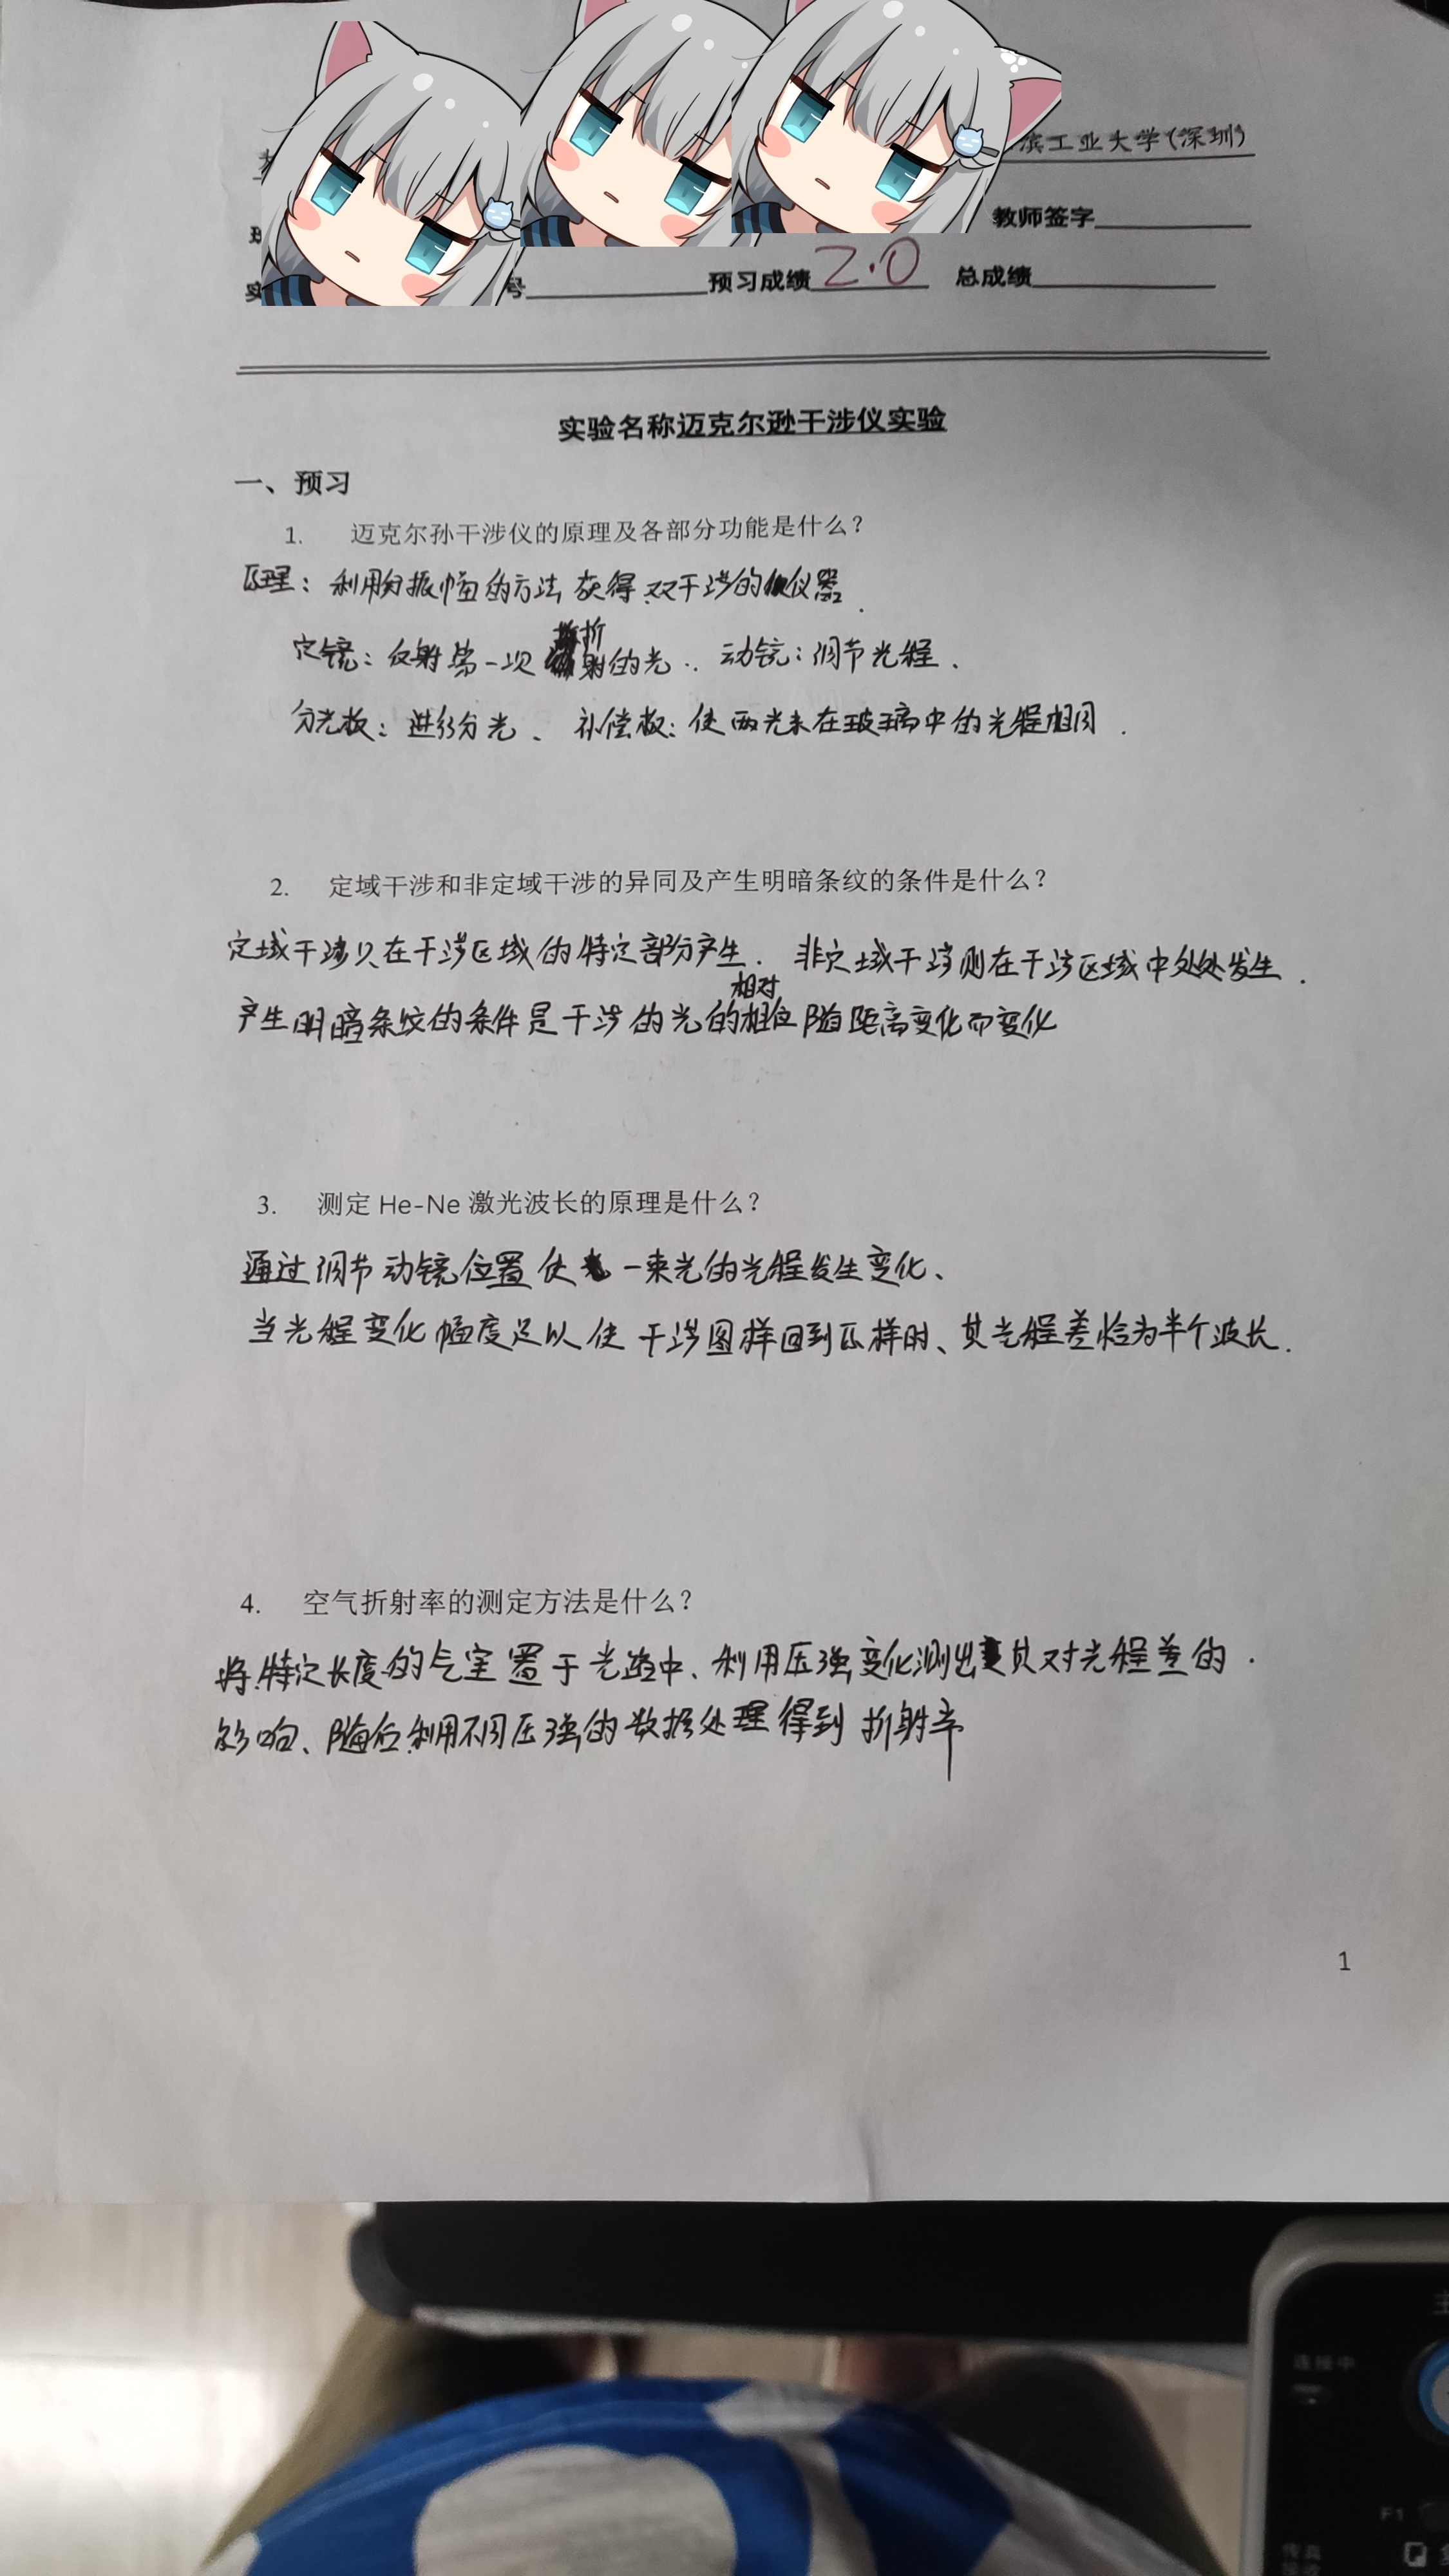 滨工业大学(深圳)
教师签字
号 预习成绩 2.0 总成绩
实验名称迈克尔逊干涉仪实验
一、预习
1. 迈克尔孙干涉仪的原理及各部分功能是什么？
原理：利用分振幅的方法获得双干涉的仪器.
定镜：反射第一次折射的光. 动镜：调节光程.
分光板：进行分光、 补偿板：使两光束在玻璃中的光程相同.
2. 定域干涉和非定域干涉的异同及产生明暗条纹的条件是什么？
定域干涉只在干涉区域的特定部分产生. 非定域干涉则在干涉区域中处处发生.
产生明暗条纹的条件是干涉的光的相对相位随距离变化而变化
3. 测定 He-Ne 激光波长的原理是什么？
通过调节动镜位置使一束光的光程发生变化、
当光程变化幅度足以使干涉图样回到原样时、其光程差恰为半个波长.
4. 空气折射率的测定方法是什么？
将特定长度的气室置于光路中、利用压强变化测出其对光程差的.
影响、随后利用不同压强的数据处理得到折射率
1
连接中
F1